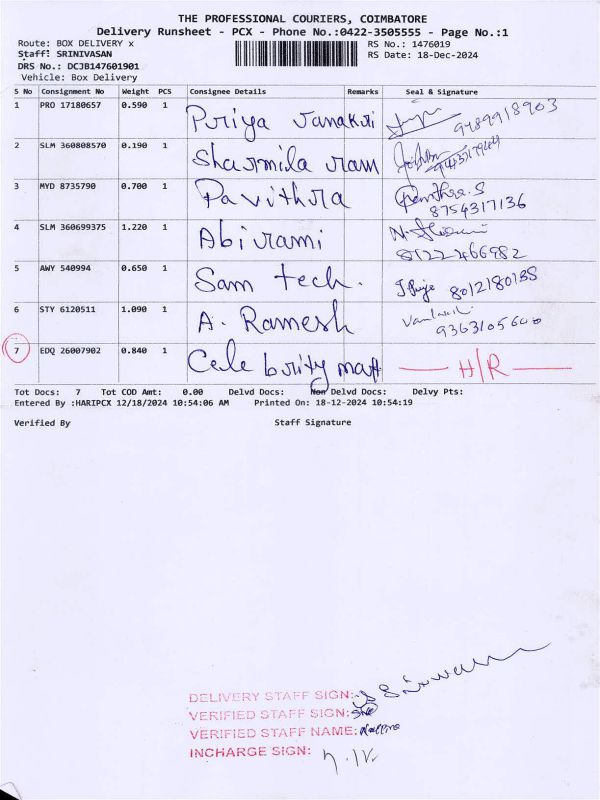 THE PROFESSIONAL COURIERS, COIMBATORE
Delivery Runsheet - PCX - Phone No.:0422-3505555 - Page No.:1
Route: BOX DELIVERY x RS No.: 1476019
Staff: SRINIVASAN RS Date: 18-Dec-2024
DRS No.: DCJB147601901
Vehicle: Box Delivery
S No Consignment No Weight PCS Consignee Details Remarks Seal & Signature
1 PRO 17180657 0.590 1 Priya Janakri 9789918903
2 SLM 360808570 0.190 1 Sharmila ram
3 MYD 8735790 0.700 1 Pavithra Pavithra.S
8754317136
4 SLM 360699375 1.220 1 Abirami
8122466982
5 AWY 540994 0.650 1 Sam tech. J Priya 8012180138
6 STY 6120511 1.090 1 A. Ramesh
9363105600
7 EDQ 26007902 0.840 1 Celebrity mart H/R
Tot Docs: 7 Tot COD Amt: 0.00 Delvd Docs: Non Delvd Docs: Delvy Pts:
Entered By :HARIPCX 12/18/2024 10:54:06 AM Printed On: 18-12-2024 10:54:19
Verified By Staff Signature
DELIVERY STAFF SIGN:
VERIFIED STAFF SIGN:
VERIFIED STAFF NAME:
INCHARGE SIGN: